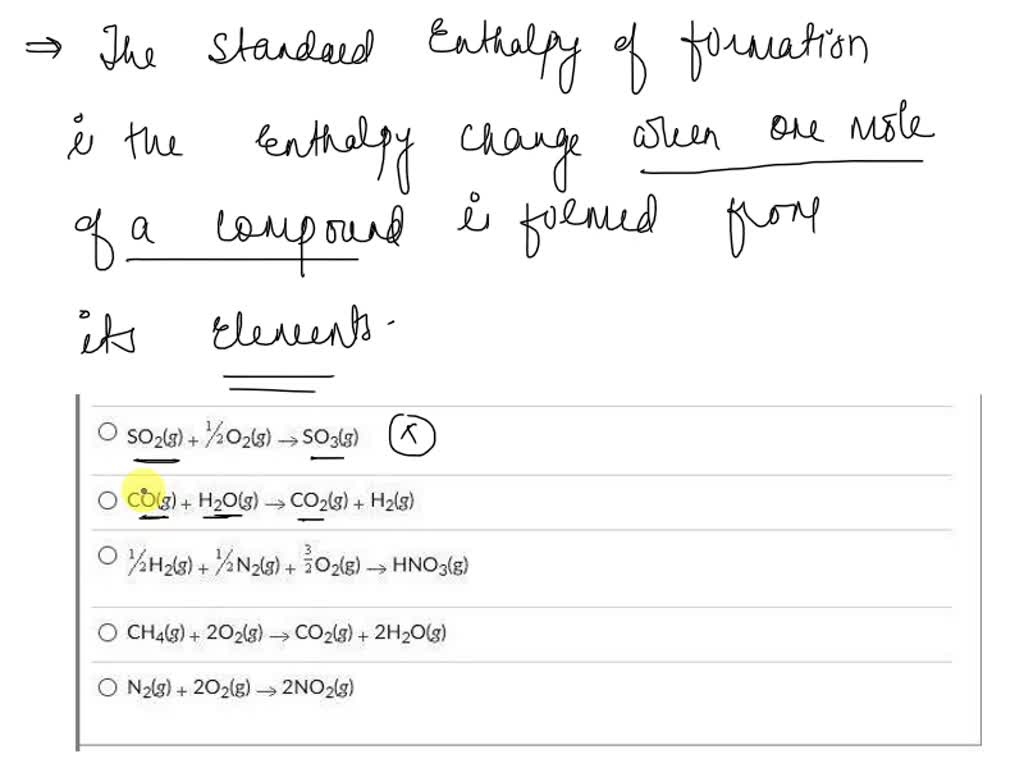 ⇒ The Standard Enthalpy of formation
is the Enthalpy change when one mole
of a compound is formed from
its Elements.
SO₂(g) + ½O₂(g) → SO₃(g) (x)
CO(g) + H₂O(g) → CO₂(g) + H₂(g)
½H₂(g) + ½N₂(g) + 3/2O₂(g) → HNO₃(g)
CH₄(g) + 2O₂(g) → CO₂(g) + 2H₂O(g)
N₂(g) + 2O₂(g) → 2NO₂(g)